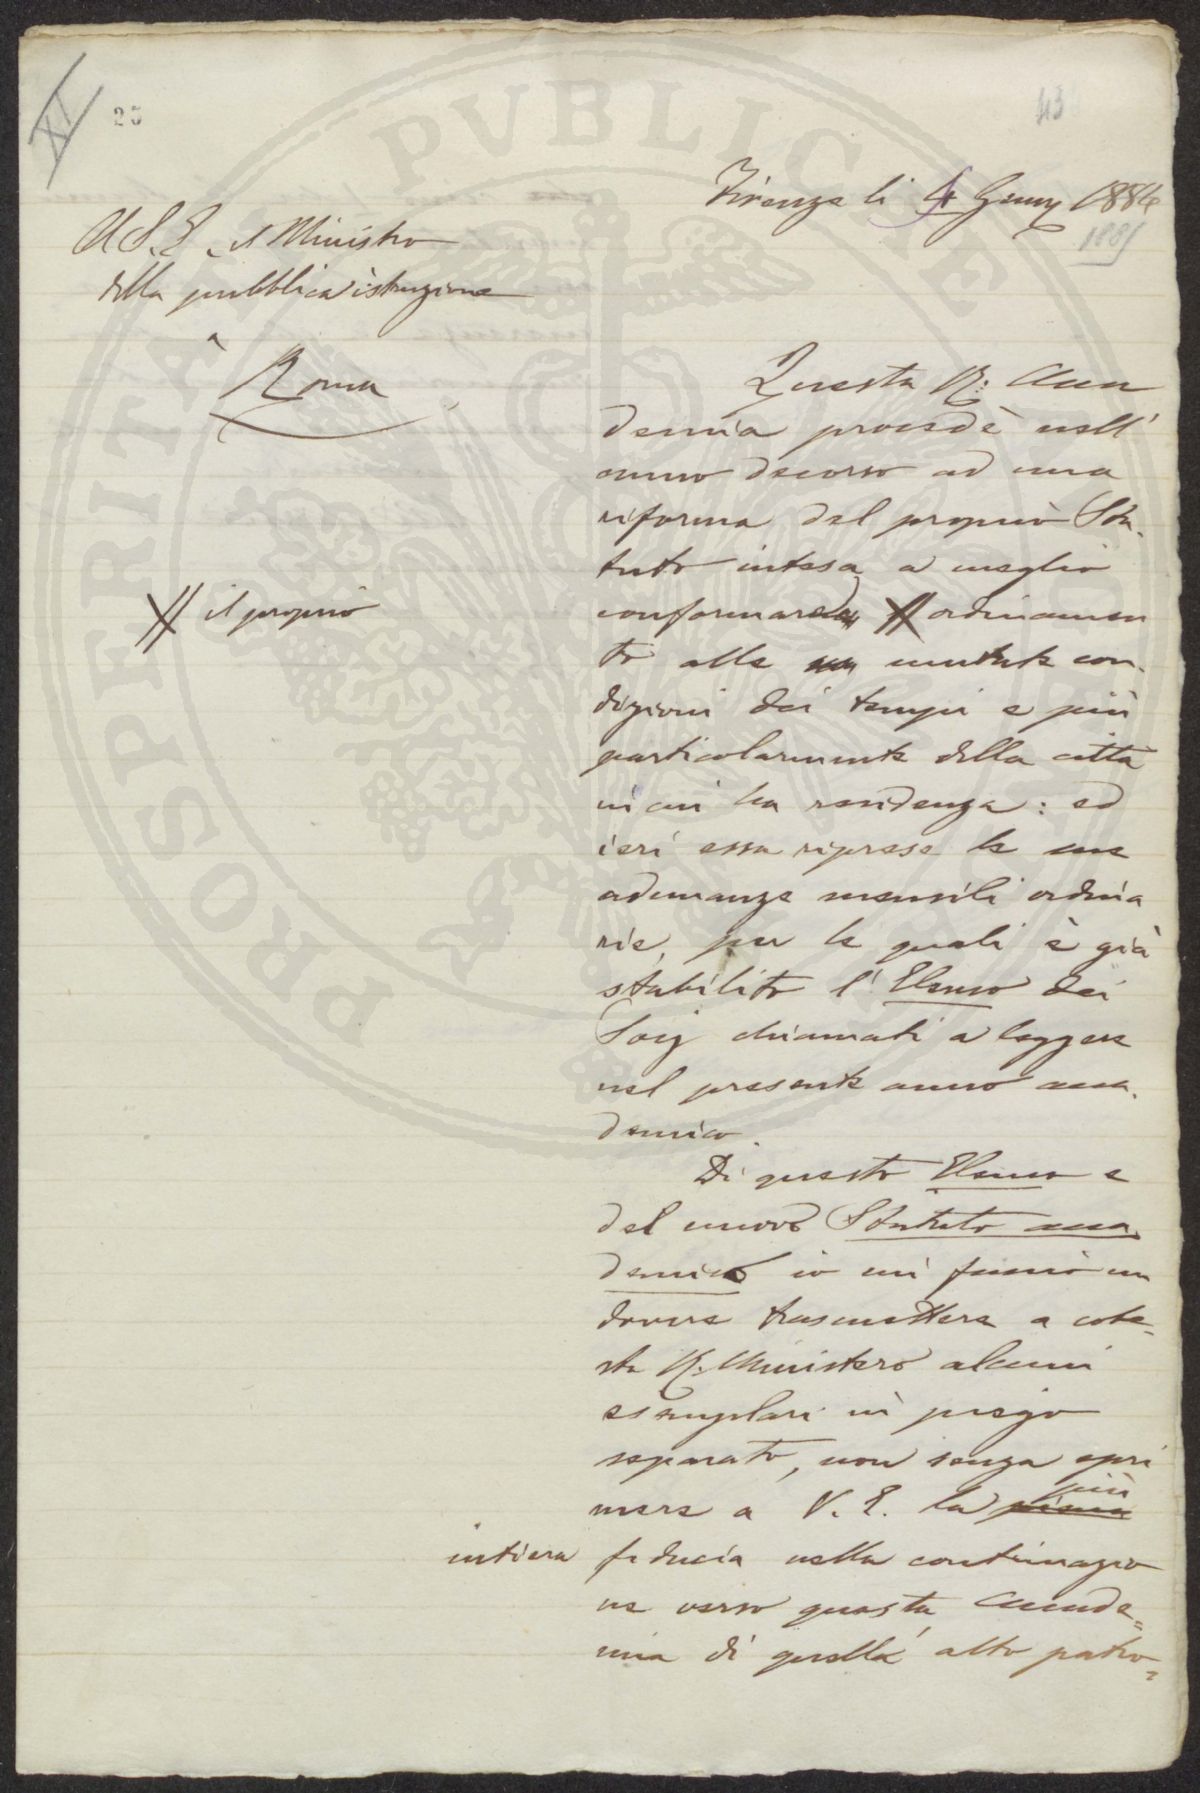 XI
25
43
Firenze li 4 Genn 1884
1885
A S. E. il Ministro
della pubblica istruzione
a
Roma
Questa R. Acca
demia procedè nell'
anno decorso ad una
riforma del proprio Sta-
tuto intesa a meglio
conformare # ordinamen
# il proprio
to alle mutate con-
dizioni dei tempi e più
particolarmente della città
in cui ha residenza: ed
ieri essa riprese le sue
adunanze mensili ordina
rie, per le quali è già
stabilito l'Elenco dei
Socj chiamati a leggere
nel presente anno acca-
demico.
Di questo Elenco e
del nuovo Statuto acca-
demico io mi faccio un
dovere trasmettere a cote=
sto R. Ministero alcuni
esemplari in piego
separato, non senza espri
mere a V. E. la piena più
intiera fiducia nella continuazio
ne verso questa Accade=
mia di quell' alto patro=
PROSPERITATI PVBLICAE